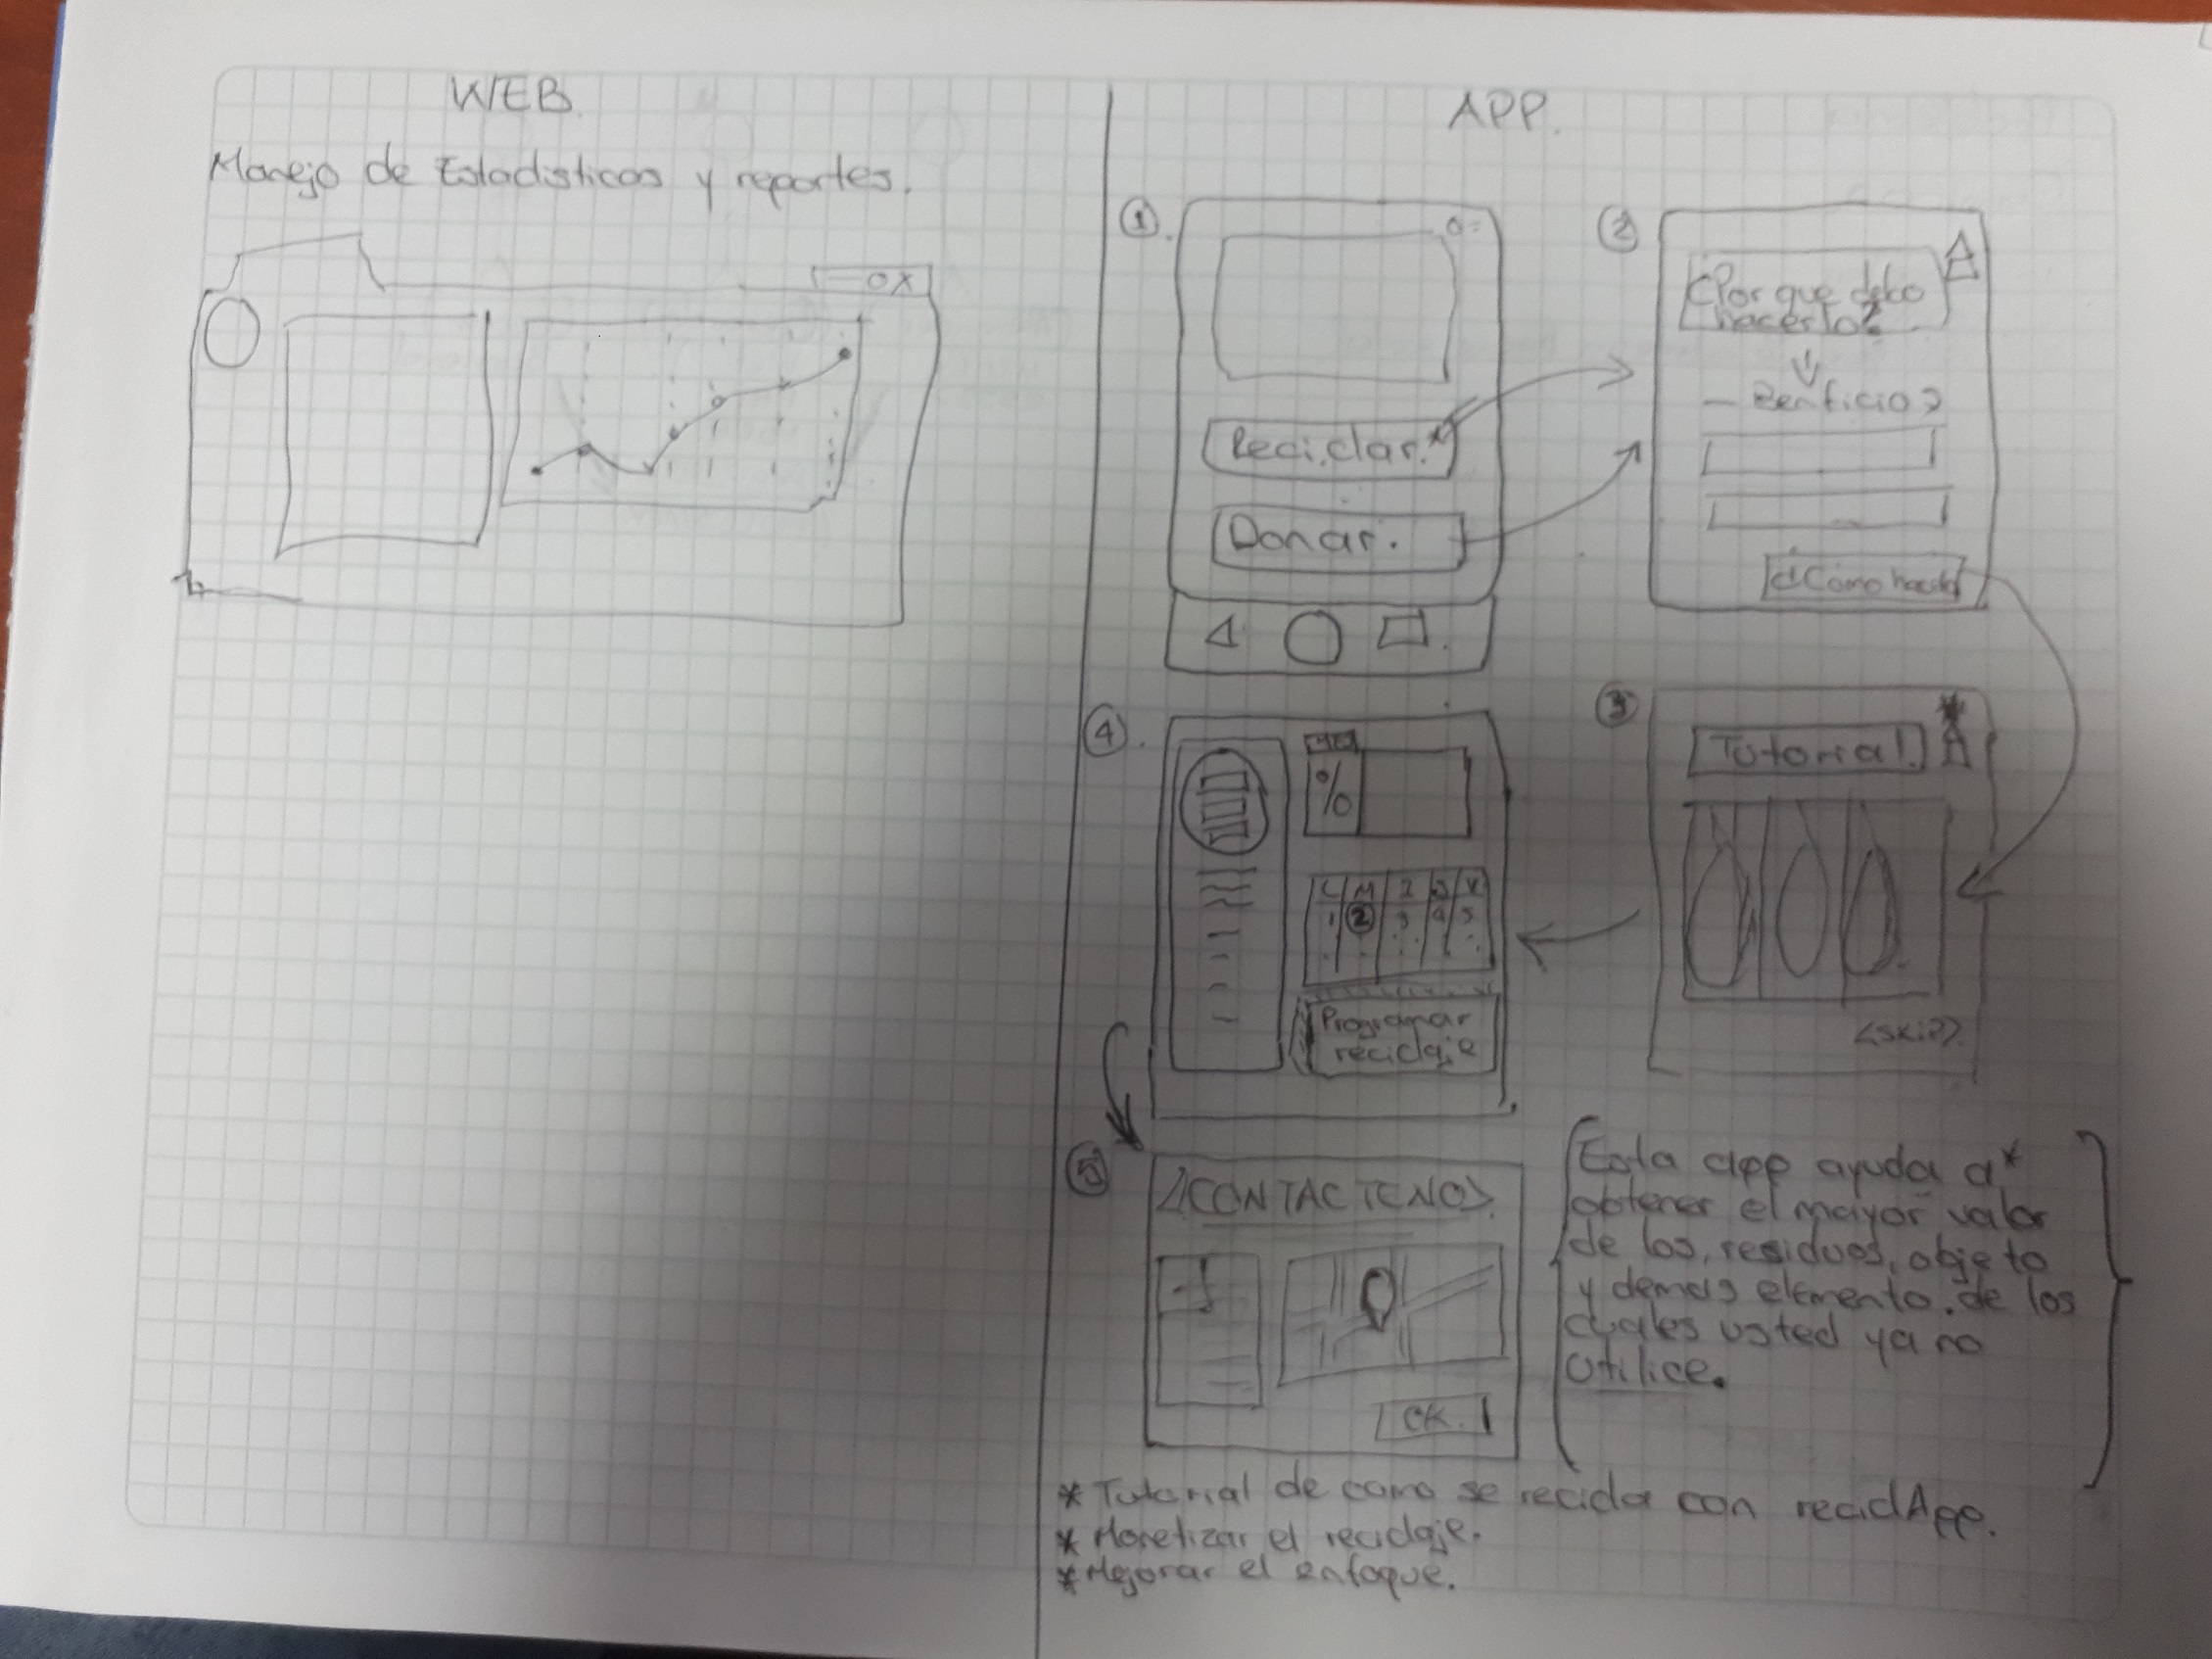 WEB.
Manejo de Estadisticas y reportes.
OX
APP.
1.
Reciclar.*
Donar.
2
¿Por que debo
hacerlo?
— Benficios
¿Como hacerlo
3
Tutorial.
<SKIP>
4.
%
L M I J V
1 2 3 4 5
Programar
reciclaje
5
¡CONTACTENOS
OK.
Esta app ayuda a*
obtener el mayor valor
de los residuos, objeto
y demas elemento. de los
cuales usted ya no
utilice.
* Tutorial de como se recicla con reciclApp.
* Monetizar el reciclaje.
* Mejorar el enfoque.